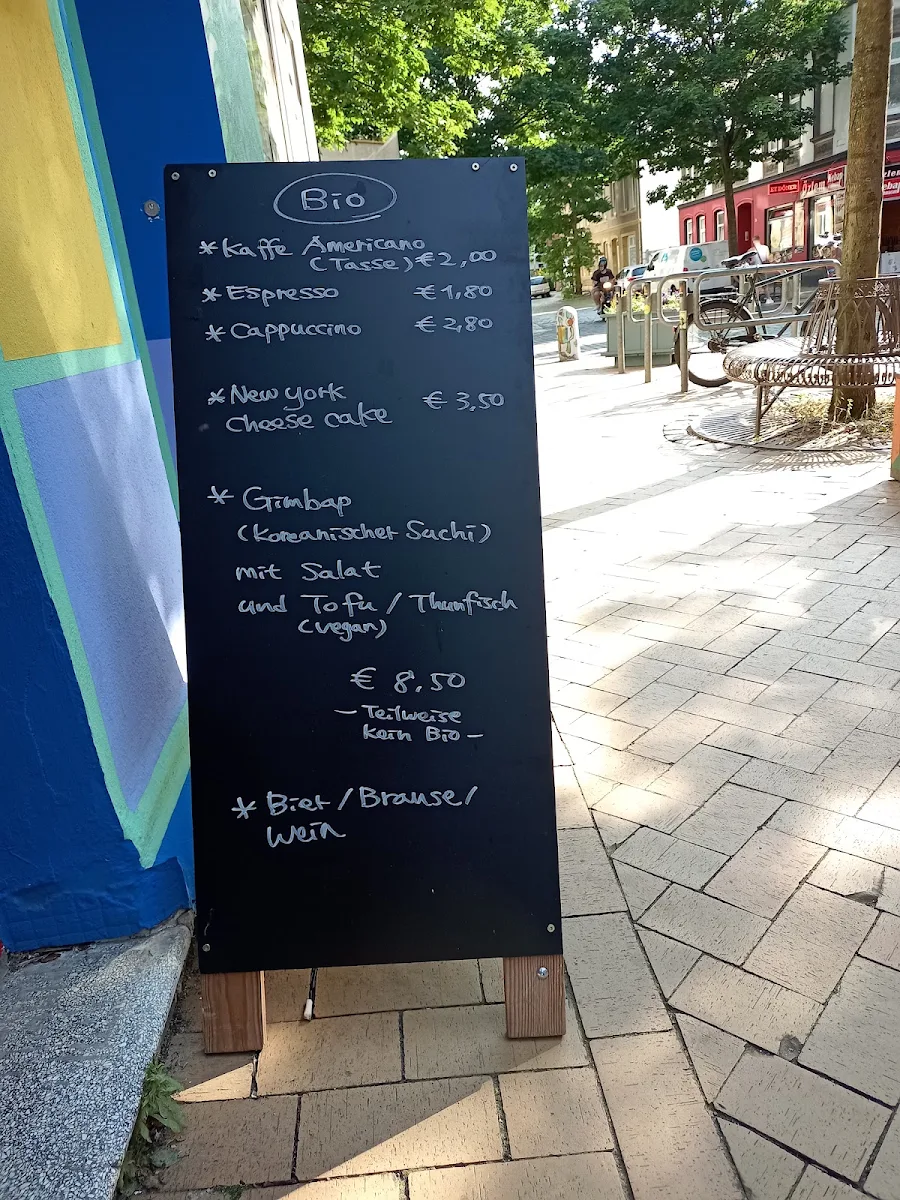 Bio
* Kaffe Americano
(Tasse) € 2,00
* Espresso € 1,80
* Cappuccino € 2,80
* New york
Cheese cake € 3,50
* Gimbap
(Koreanischer Suchi)
mit Salat
und Tofu / Thunfisch
(vegan)
€ 8,50
- Teilweise
kein Bio -
* Bier / Brause /
Wein
Özlem
Kebap